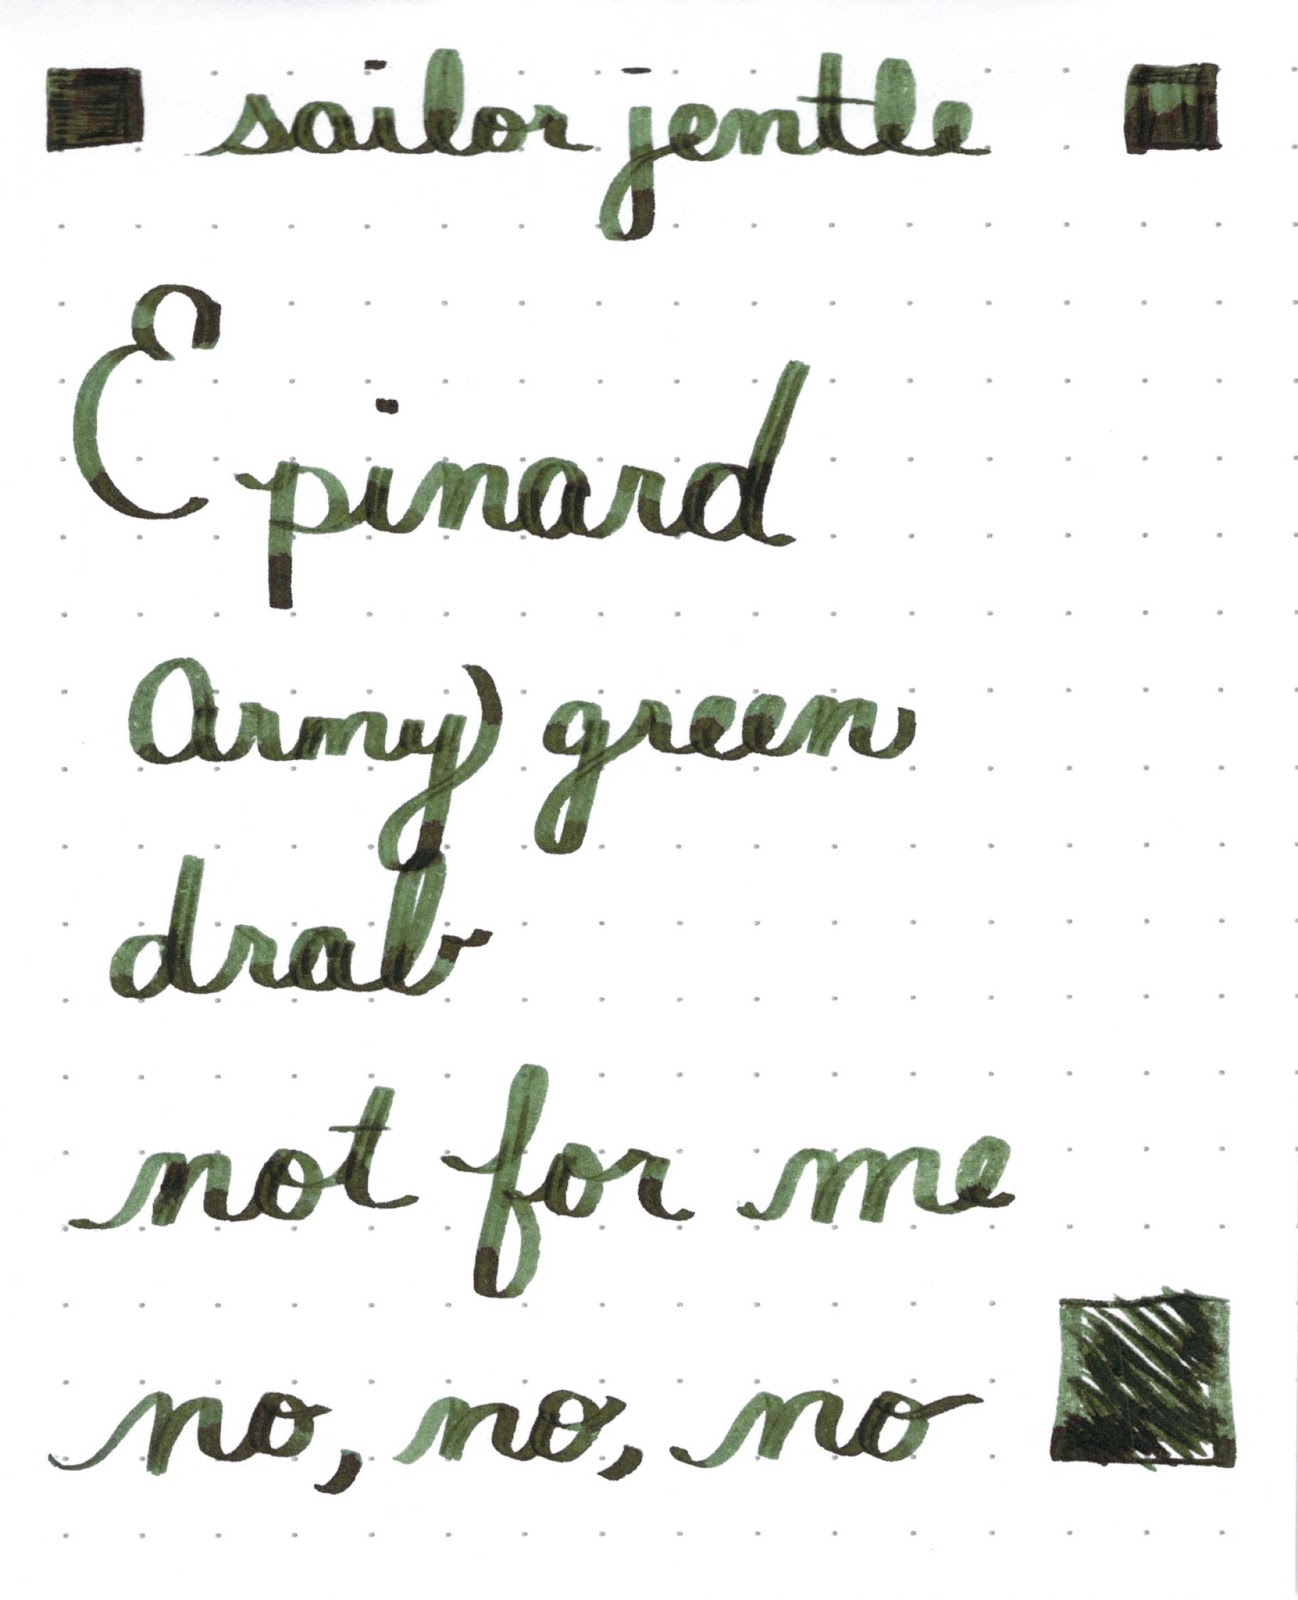 sailor jentle
Epinard
Army green
drab
not for me
no, no, no